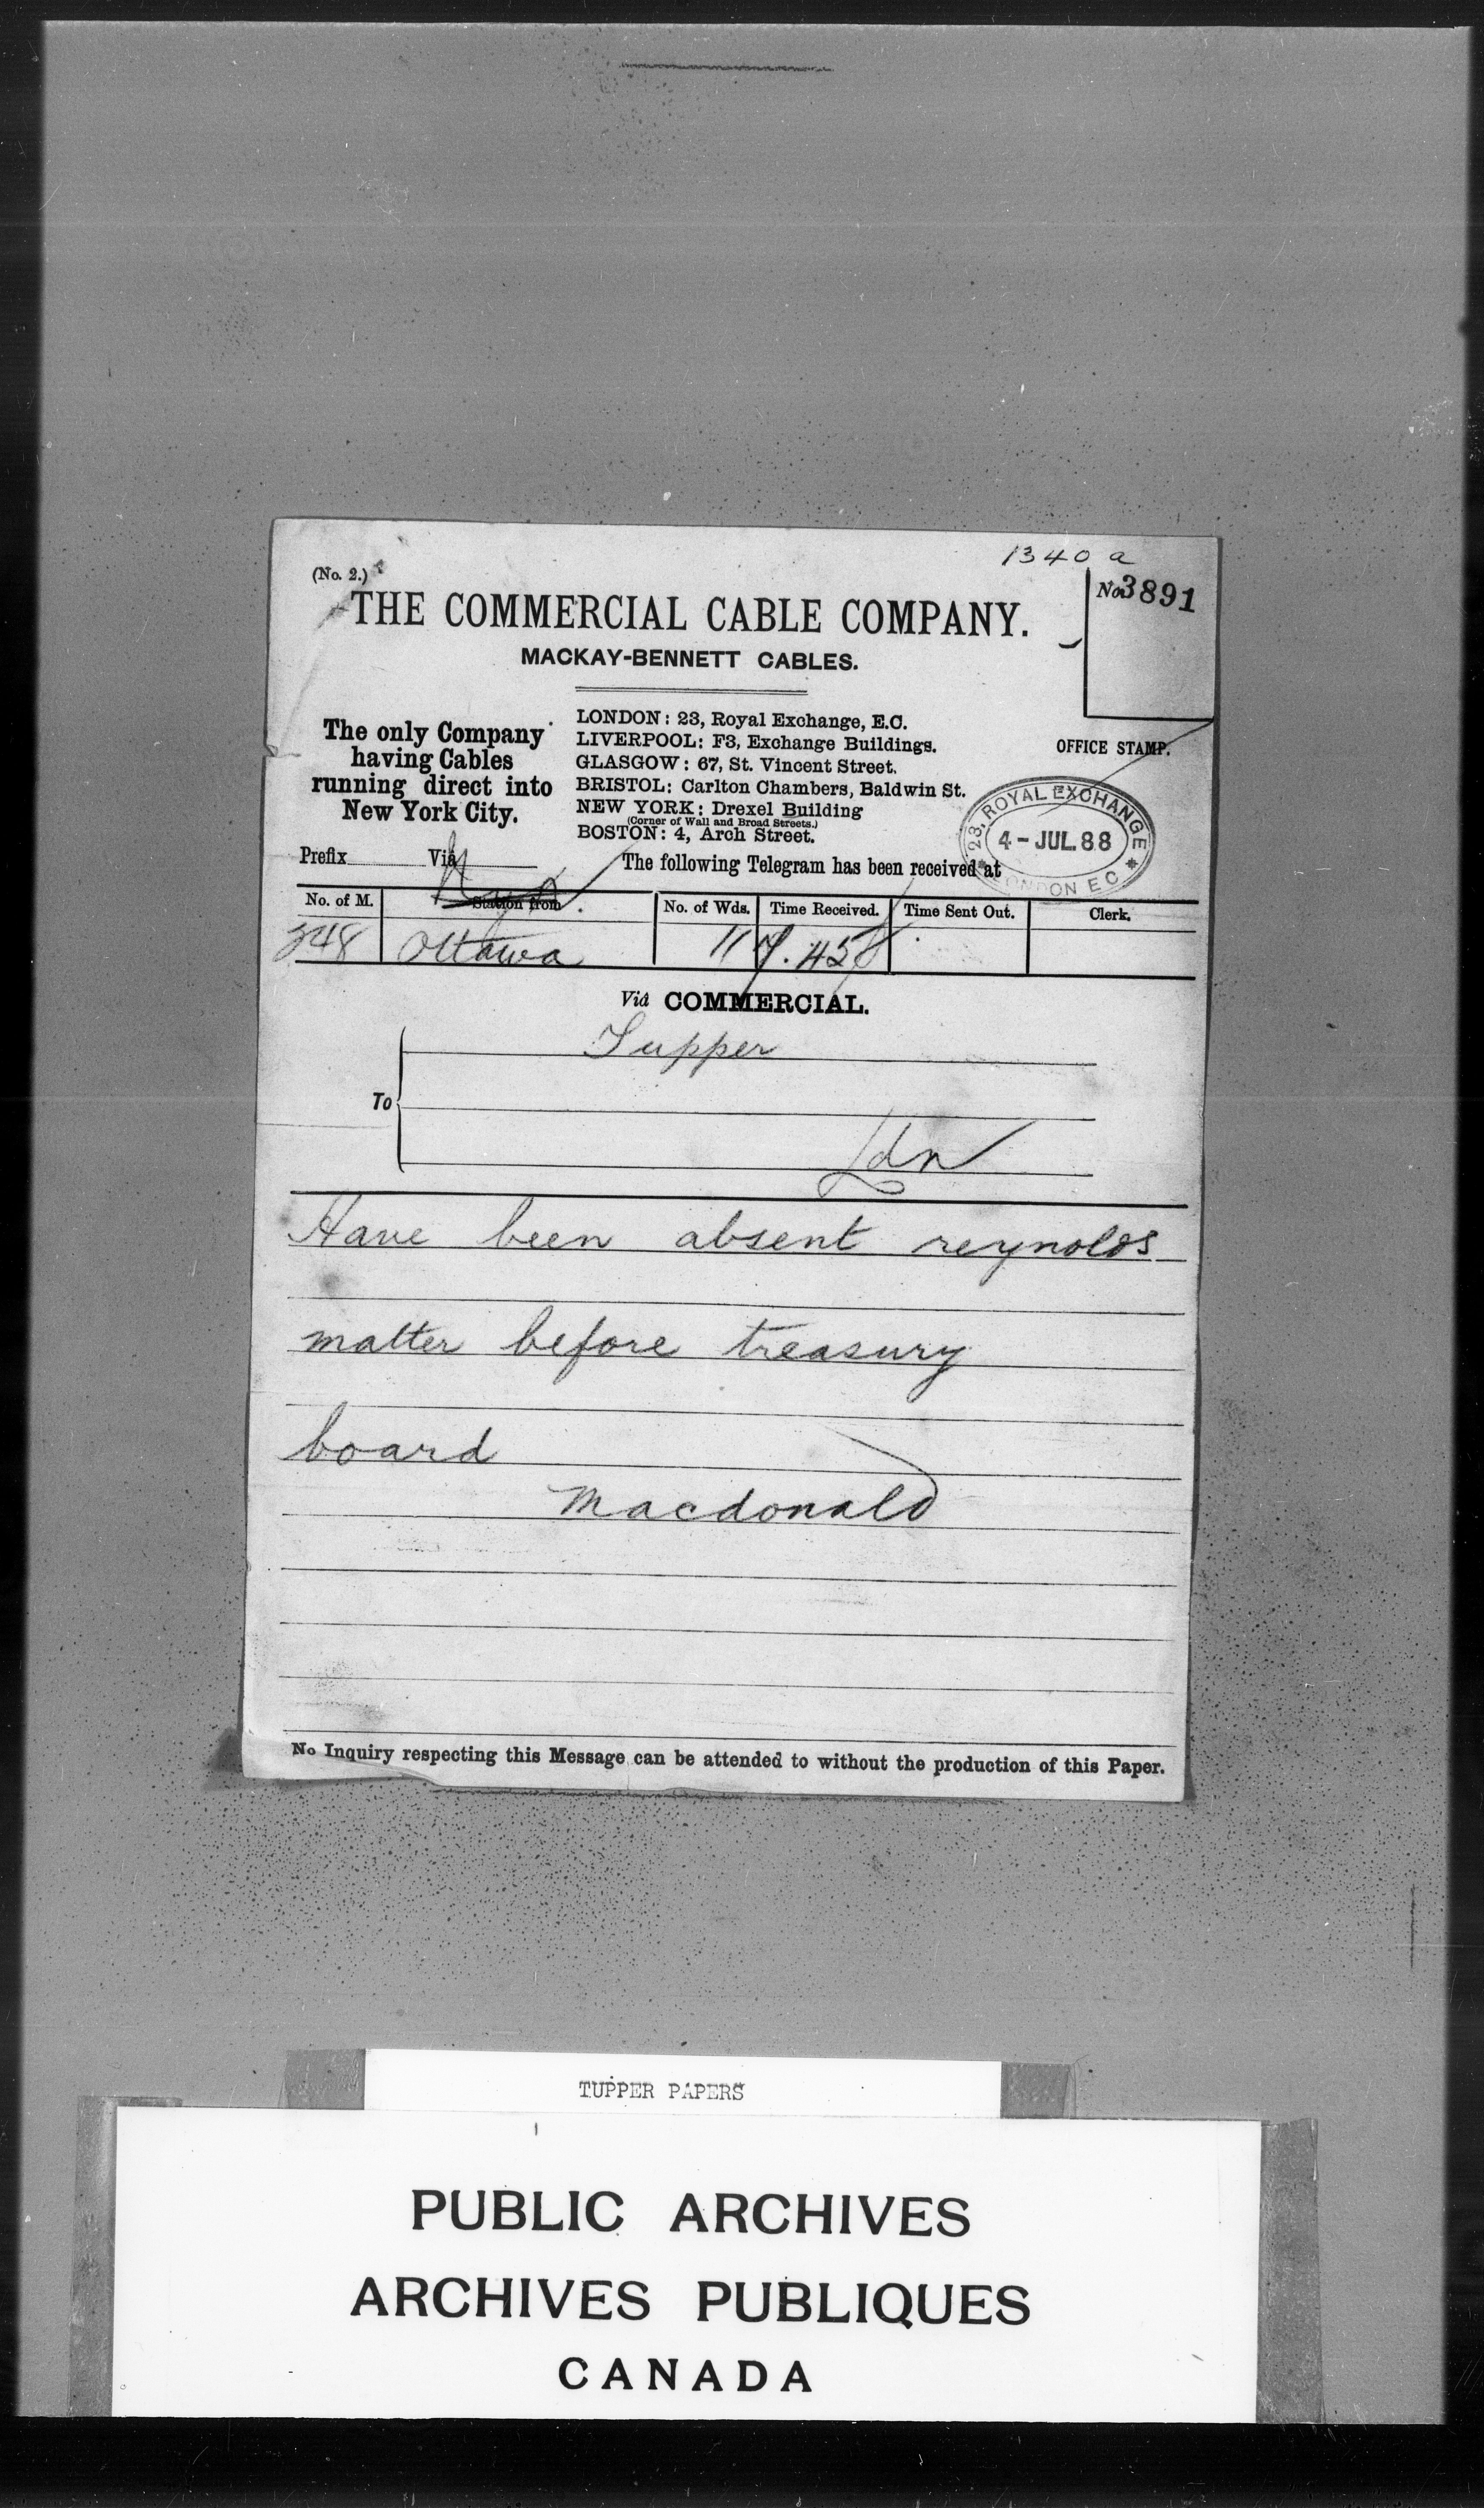 1340 a
(No. 2.)
No. 3891
THE COMMERCIAL CABLE COMPANY.
MACKAY-BENNETT CABLES.
The only Company
having Cables
running direct into
New York City.
LONDON: 23, Royal Exchange, E.C.
LIVERPOOL: F3, Exchange Buildings.
GLASGOW: 67, St. Vincent Street.
BRISTOL: Carlton Chambers, Baldwin St.
NEW YORK: Drexel Building
(Corner of Wall and Broad Streets.)
BOSTON: 4, Arch Street.
OFFICE STAMP.
23, ROYAL EXCHANGE
4-JUL.88
LONDON E C
Prefix Via
The following Telegram has been received at
No. of M. Station from No. of Wds. Time Received. Time Sent Out. Clerk.
348 Ottawa 11
Via COMMERCIAL.
Tupper
To
Ldn
Have been absent reynolds
matter before treasury
board
Macdonald
No Inquiry respecting this Message can be attended to without the production of this Paper.
TUPPER PAPERS
PUBLIC ARCHIVES
ARCHIVES PUBLIQUES
CANADA